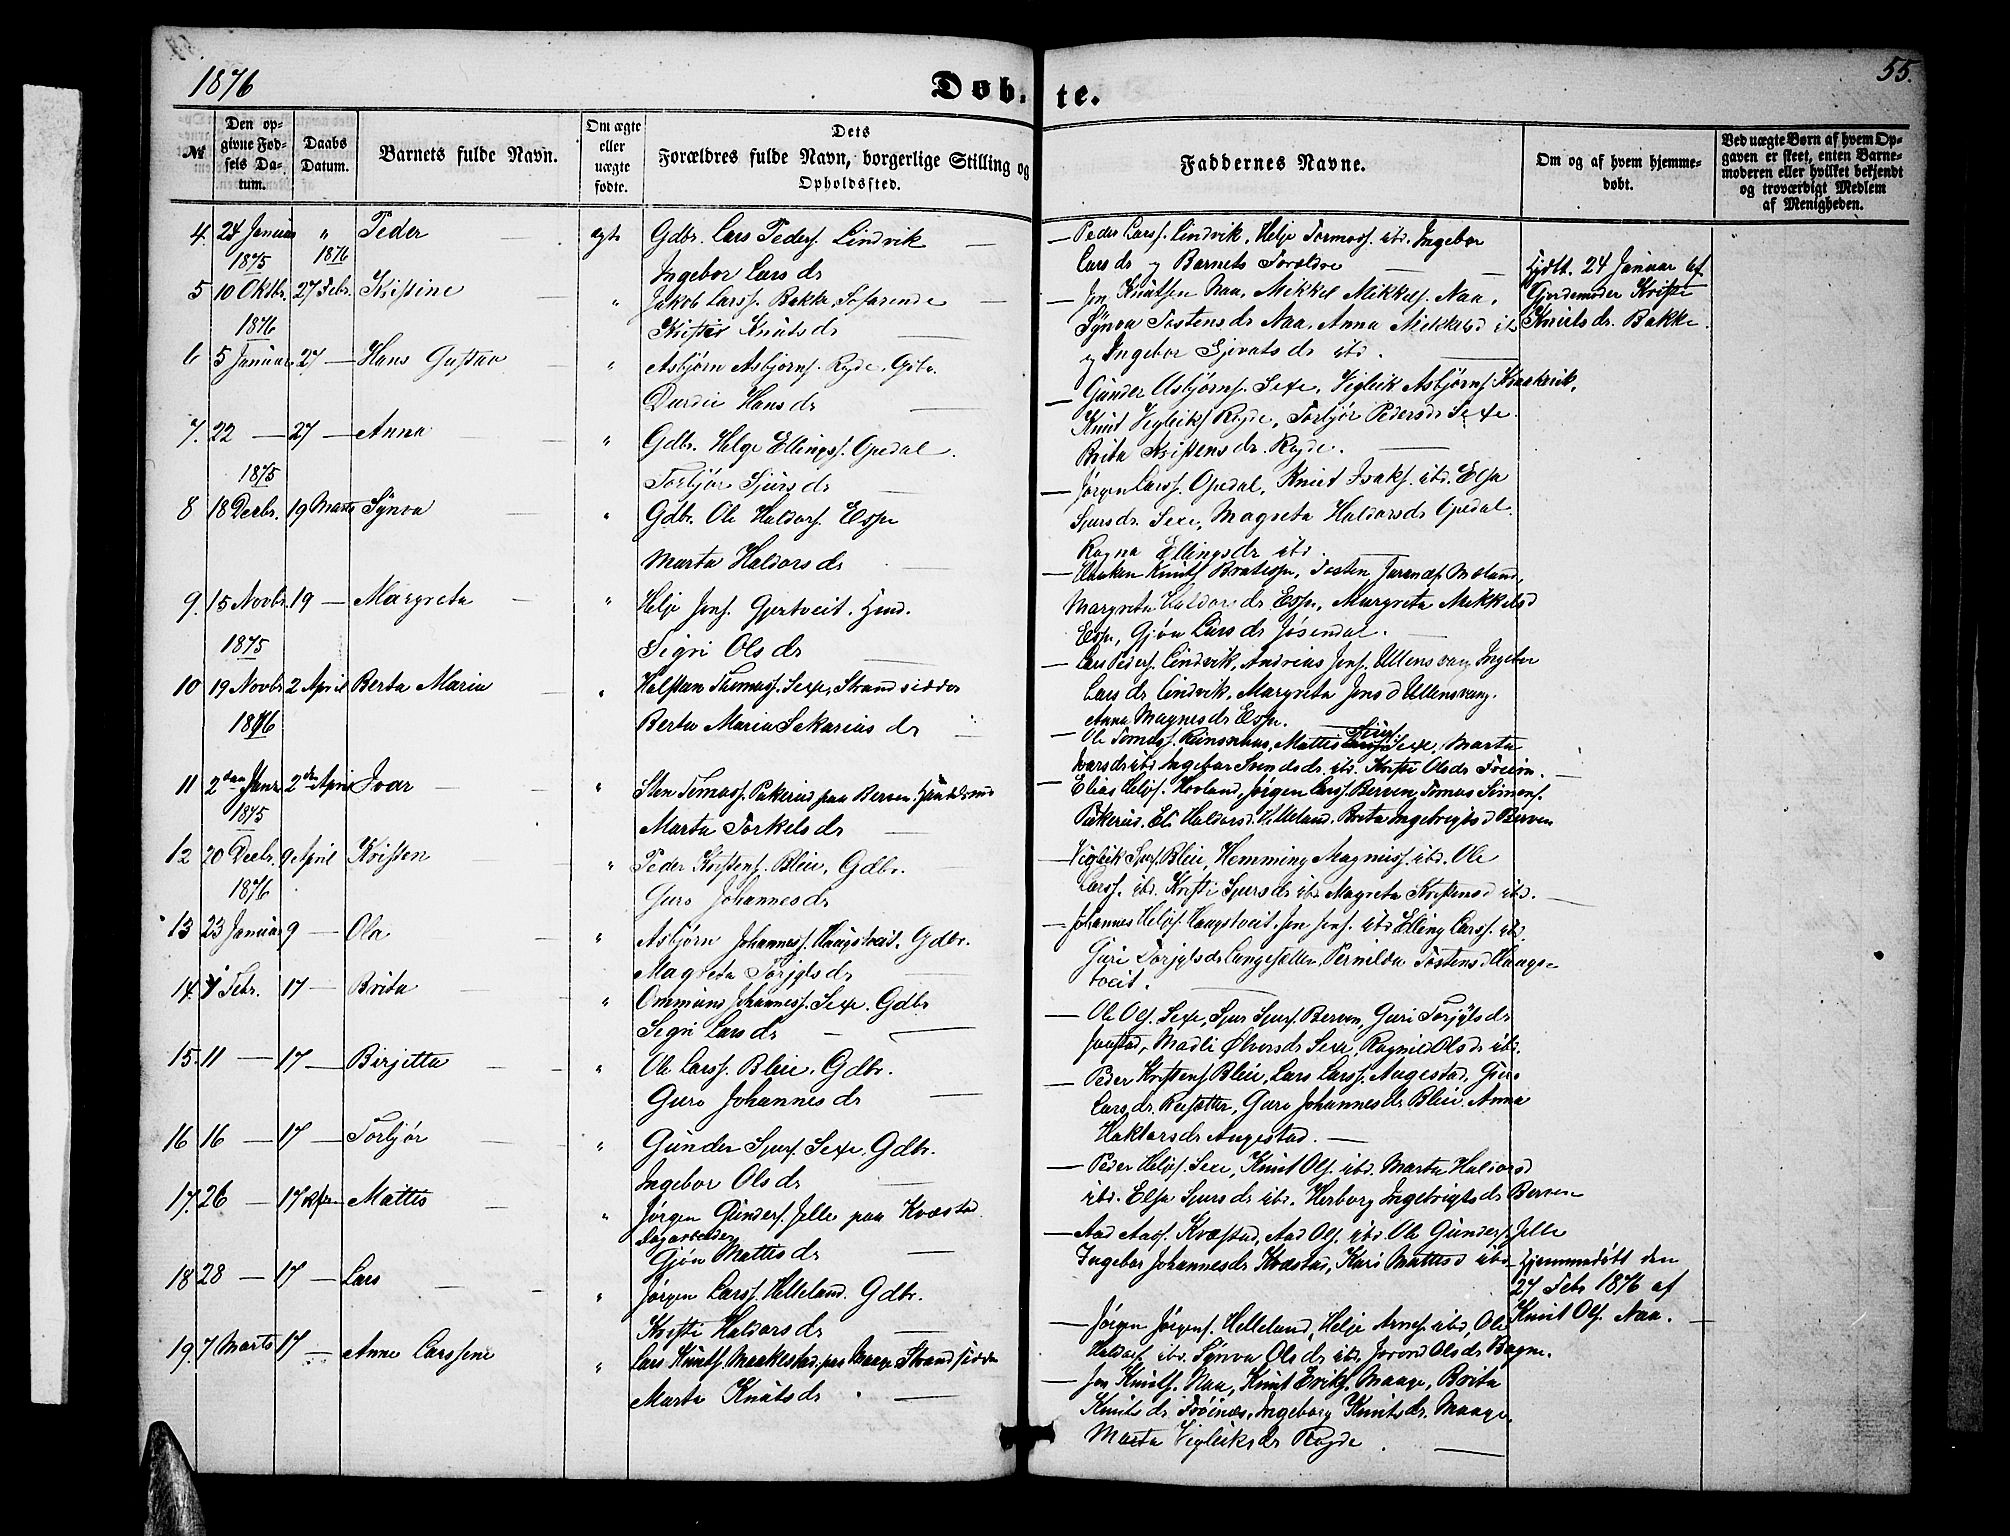 1876
Døb.
te.
55.
№
Den op-
givne Fød-
sels Da-
tum.
Daabs
Datum.
Barnets fulde Navn.
Om ægte
eller
uægte
fødte.
Dets
Forældres fulde Navn, borgerlige Stilling og
Opholdssted.
Faddernes Navne.
Om og af hvem hjemme-
døbt.
Ved uægte Børn af hvem Op-
gaven er skeet, enten Barne-
moderen eller hvilket bekjendt
og troværdigt Medlem
af Menigheden.
4. 24 Januar " Peder ægte Gdbr. Lars Peders. Lindvik
Ingebor Larsdr
— Peder Larss. Lindvik, Helje Tormods. ibd. Ingebor
Larsdr og Barnets Forældre
Hjdbt. 24 Januar af
Gjordemoder Kristi
Knutsdr. Bakke.
1875 1876
5 10 Oktbr. 27 Febr. Kristine " Jakob Larss. Bakke, Søfarende
Kristi Knutsdr
— Jon Knutsen Naa, Mikkel Mikkels. Naa,
Synva Tostensdr Naa, Anna Mikkelsd ibd
og Ingebor Sjovatsdr ibd.
1876
6 5 Januar 27 — Hans Gustav " Asbjørn Asbjørns. Ryde, Gdbr.
Durdei Hansdr
— Gunder Asbjørns. Sexe, Vigleik Asbjørns. Kinservik,
Knut Vigleiks Ryde, Torbjør Pedersdr Sexe.
Brita Kristensdr. Ryde.
7. 22 — 27 — Anna " Gdbr. Helge Ellings. Opedal.
Torbjør Sjursdr
— Jørgen Larss. Opedal, Knut Isaks. ibd. Elsa
Sjursdr. Sexe, Magreta Haldorsdr Opedal.
Ragna Ellingsdr ibd.
1875
8 18 Decbr. 19 Marts Synva " Gdbr. Ole Haldors. Espe
Marta Haldorsdr
— Haaken Knuts Bratespe, Tosten Moland,
Margreta Haldorsdr Espe, Margreta Mikkelsd
Espe, Gjøa Larsdr Jøsendal.
9. 15 Novbr. 19 — Margreta " Helje Jons. Gjertveit. Hmd.
Sigri Olsdr
— Lars Peders. Lindvik, Andreas Jons. Ullensvang Ingebor
Larsdr Lindvik, Margreta Jonsd Ullensvang.
Anna Magnesdr Espe.
1875
10 19 Novbr 2 April Berta Maria " Halstan Thomass. Sexe, Strandsidder
Berta Maria Sakariasdr
— Ole Tomass. Reinsnaas, Mattis Sjurs. Sexe, Marta
Larsdr ibd Ingebor Svendsdr. ibd. Kristi Olsdr
1876
11 2den Janr 2den April Ivar " Sten Tomass. paa Berven
Marta Torkelsdr
— Elias Heljes. Hovland, Jørgen Larss. Berven, Tomas Simons.
Eli Haldorsd. Helleland. Brita Ingebrigtsd Berven
1875
12 20 Decbr. 9 April Kristen " Peder Kristens. Bleie, Gdbr.
Guro Johannesdr
— Vigleik Sjurs. Bleie, Hemming Magnuss. ibd. Ole
Larss. ibd. Kristi Sjursdr ibd Magreta Kristensd ibd.
1876
13 23 Januar 9 — Ola " Asbjørn Johanness. Haugstveit, Gdbr.
Magreta Torjylsdr
— Johannes Heljes. Haugstveit, Jon Jons. ibd Elling Larss. ibd.
Guri Torjylsdr Langesæter, Pernilda Tostensd Haugs-
tveit.
14. 4 Febr. 17 — Brita " Ommund Johanness. Sexe. Gdbr
Segri Larsdr
— Ole Ols. Sexe, Sjur Sjurs. Berven, Guri Torjylsdr
Jaastad, Madli Ølversdr Sexe, Ragnild Olsdr ibd.
15. 11 — 17 — Birjetta " Ole Larss. Bleie, Gdbr.
Guro Johannesdr
— Peder Kristens. Bleie, Lars Larss. Augestad, Guro
Larsdr. Reisæter, Guro Johannesdr Bleie, Anna
Haktorsdr Augestad.
16 16 — 17 — Torbjør " Gunder Sjurs. Sexe, Gdbr.
Ingebor Olsdr
— Peder Heljes. Sexe, Knut Ols. ibd. Marta Haldorsd
ibd. Elsa Sjursdr ibd. Herborg Ingebrigtsdr Berven
17. 26 — 17 Mattis " Jørgen Gunders. Jelle paa Kvæstad
Dagarbeider
Gjøa Mattisdr
— Aad Aads. Kvæstad, Aad Ols. ibd Ole Gunders. Jelle
Ingebor Johannesdr Kvæstad, Kari Mattisd ibd
18. 28 — 17 — Lars " Jørgen Larss. Helleland. Gdbr.
Kristi Haldorsdr
— Jørgen Jørgens. Helleland, Helje Arnes. ibd, Ole
Haldors. ibd. Synva Olsdr ibd Jorond Olsdr Bagne.
hjemmedøbt den
27 Febr 1876 af
Knut Ols. Naa.
19. 7 Marts 17 — Anne Larssine " Lars Knuts. Maakestad, paa Maage Strandsidder
Marta Knutsdr
— Jon Knuts. Naa, Knut Eriks. Maage, Brita
Knutsdr Frøinæs, Ingeborg Knutsdr. Maage.
Marta Vigleiksdr Ryde